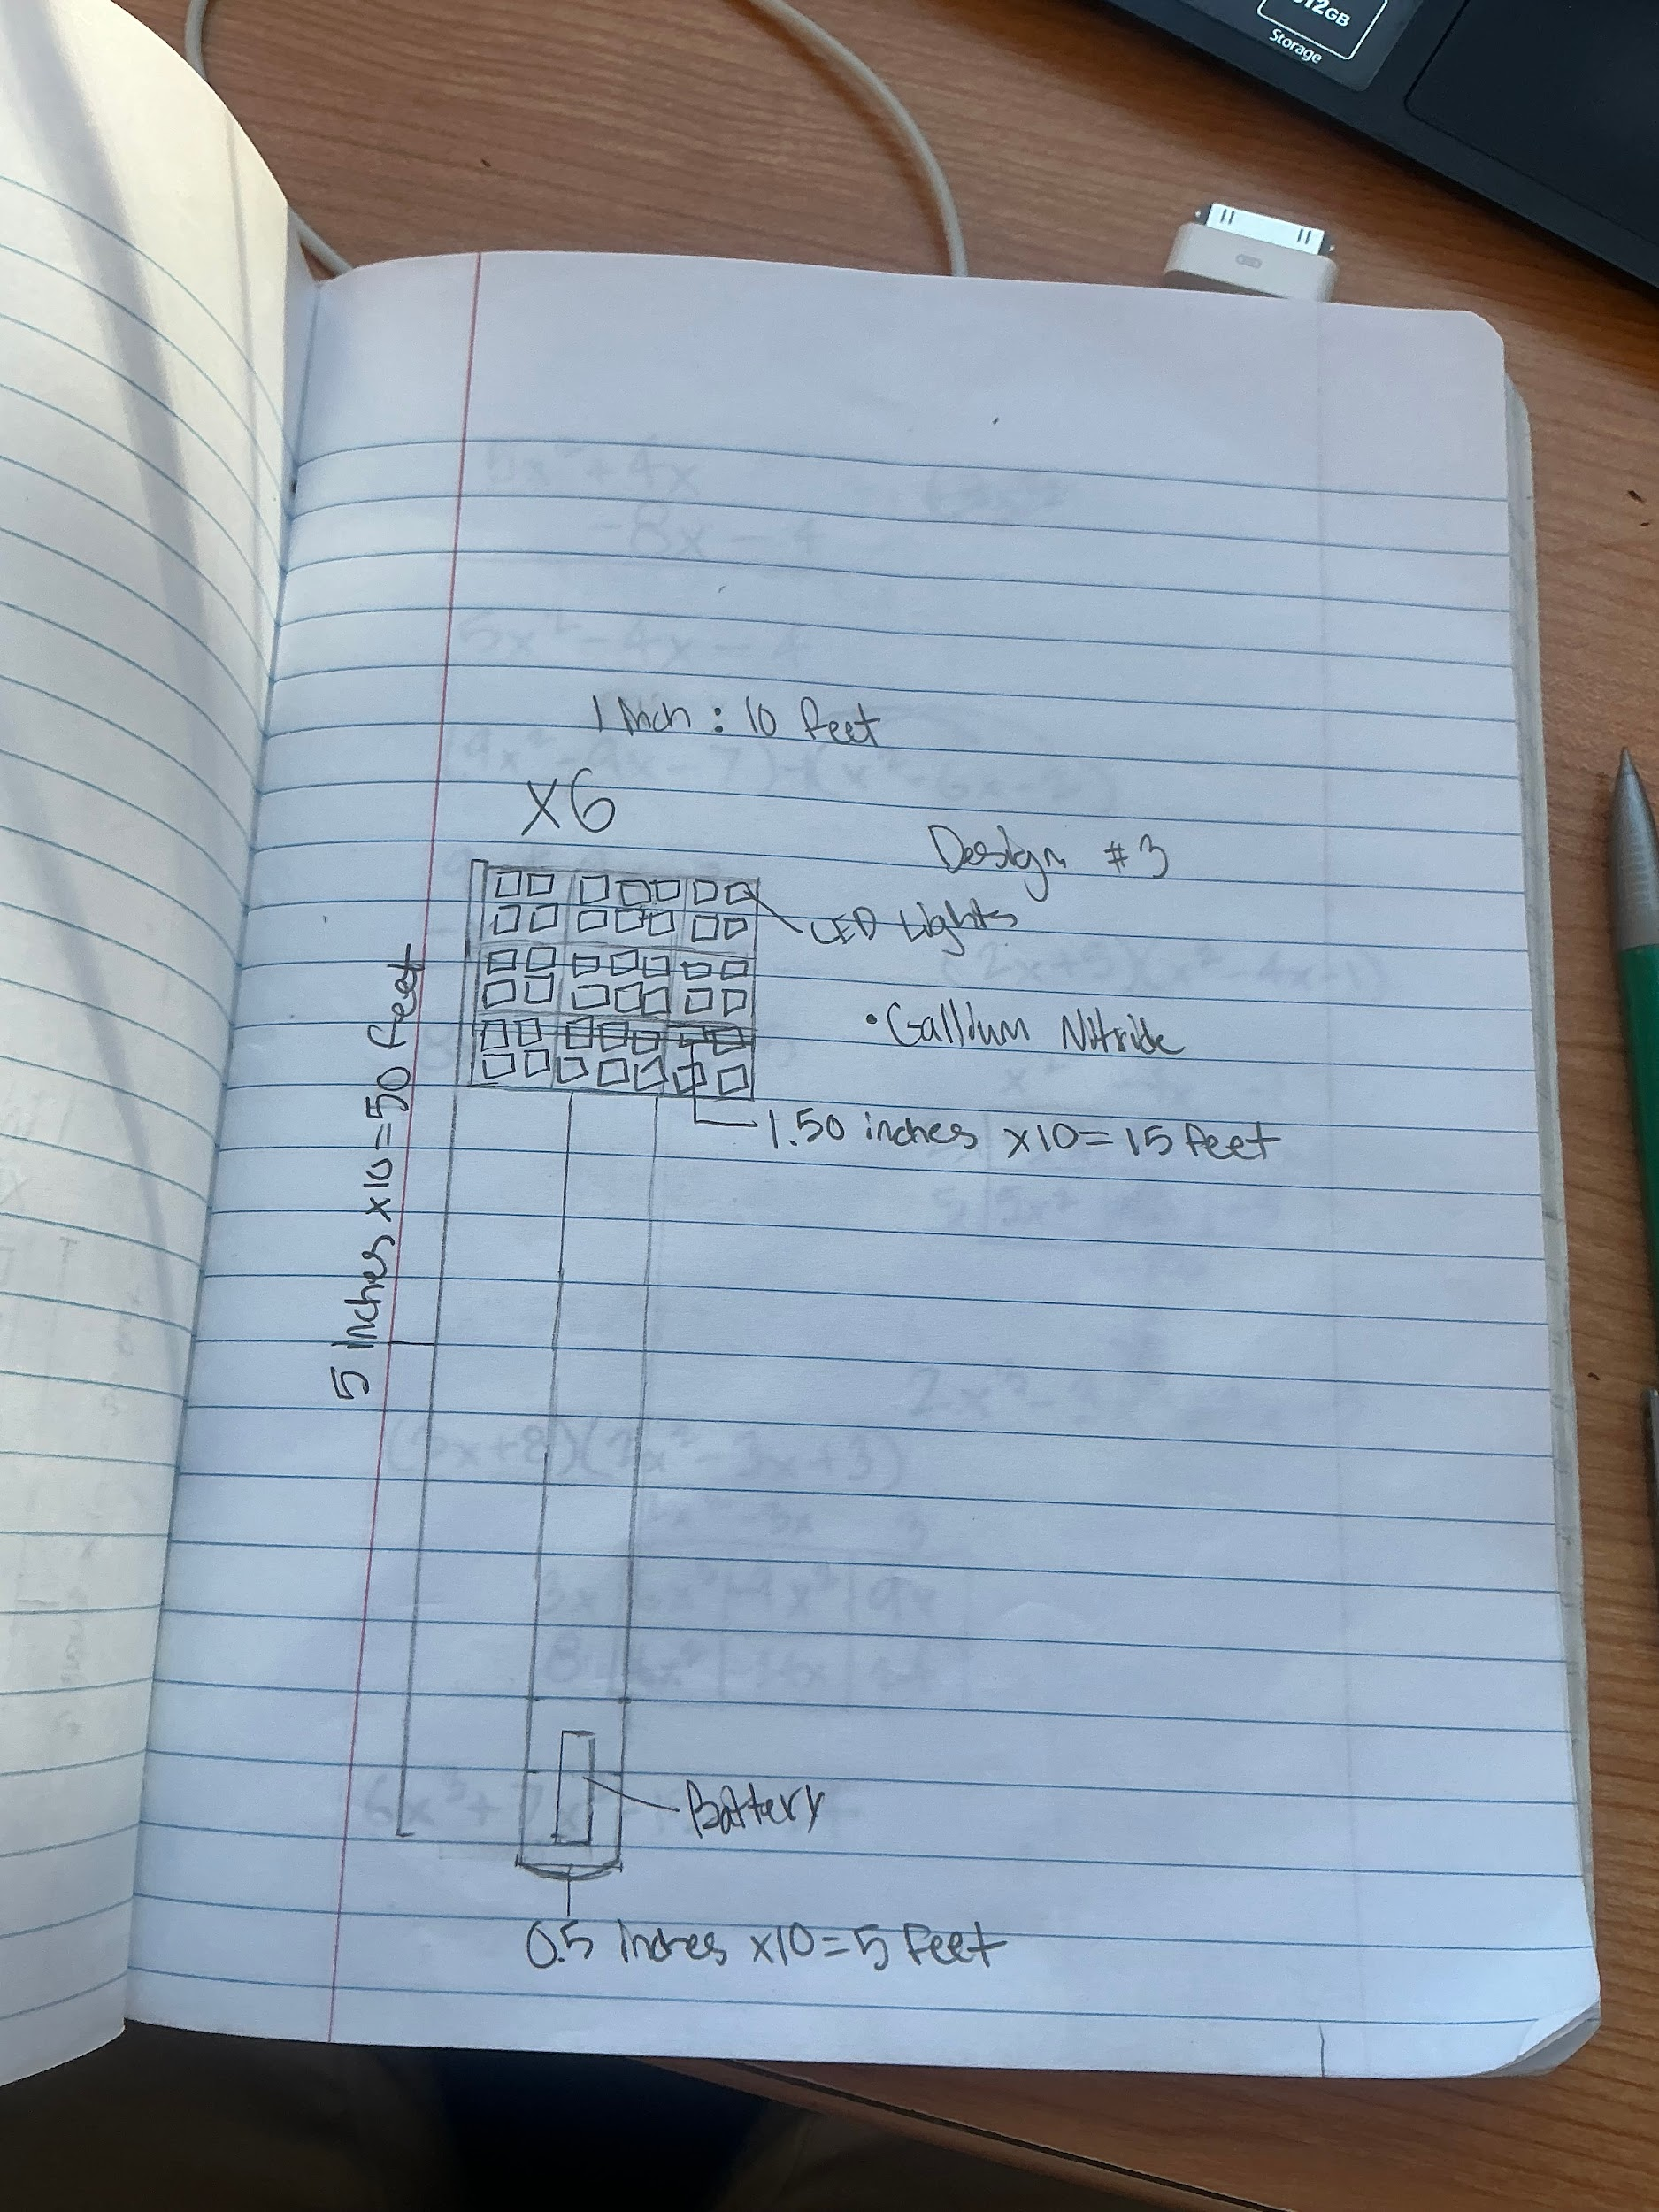 12GB
Storage
5x² + 4x
-8x - 4
5x² - 4x - 4
1 Inch : 10 feet
x6
Design #3
LED Lights
• Gallium Nitride
5 inches x10=50 feet
1.50 inches x10=15 feet
Battery
0.5 inches x10=5 feet